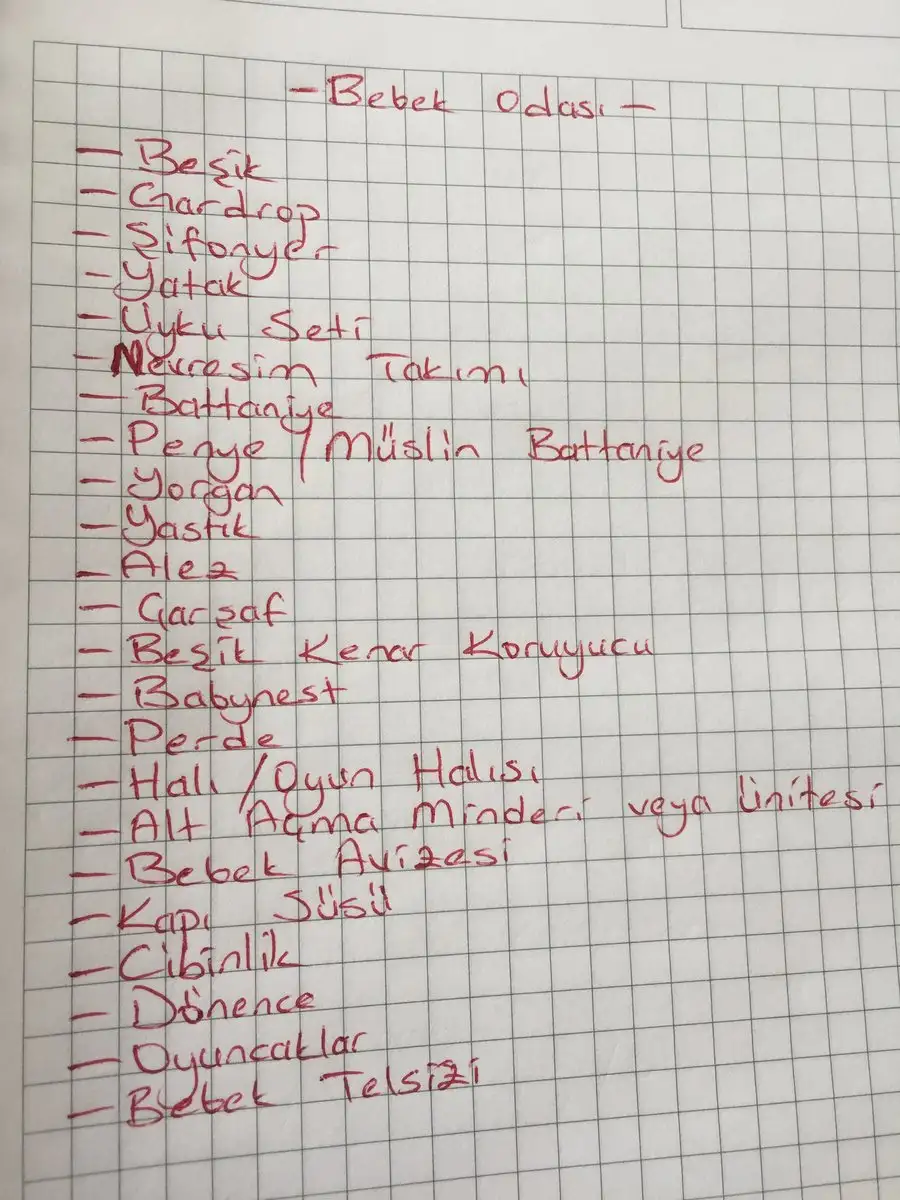 - Bebek Odası -
- Beşik
- Gardrop
- Şifonyer
- Yatak
- Uyku Seti
- Nevresim Takımı
- Battaniye
- Penye / Müslin Battaniye
- Yorgan
- Yastık
- Alez
- Çarşaf
- Beşik Kenar Koruyucu
- Babynest
- Perde
- Halı / Oyun Halısı
- Alt Açma Minderi veya Ünitesi
- Bebek Avizesi
- Kapı Süsü
- Cibinlik
- Dönence
- Oyuncaklar
- Bebek Telsizi